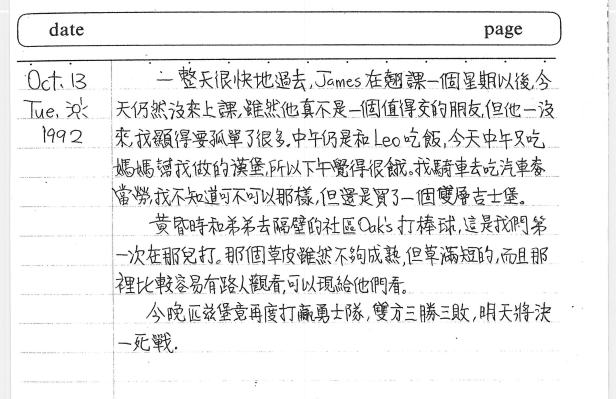 date page
Oct. 13
Tue. 火
1992
一整天很快地過去,James在翹課一個星期以後,今
天仍然沒來上課,雖然他真不是一個值得交的朋友,但他一沒
來,我顯得要孤單了很多。中午仍是和Leo吃飯,今天中午又吃
媽媽幫我做的漢堡,所以下午覺得很餓。我騎車去吃汽車麥
當勞,我不知道可不可以那樣,但還是買了一個雙層吉士堡。
黃昏時和弟弟去隔壁的社區Oak's打棒球,這是我們第
一次在那兒打。那個草皮雖然不夠成熟,但草滿短的,而且那
裡比較容易有路人觀看,可以現給他們看。
今晚匹茲堡竟再度打贏勇士隊,雙方三勝三敗,明天將決
一死戰.